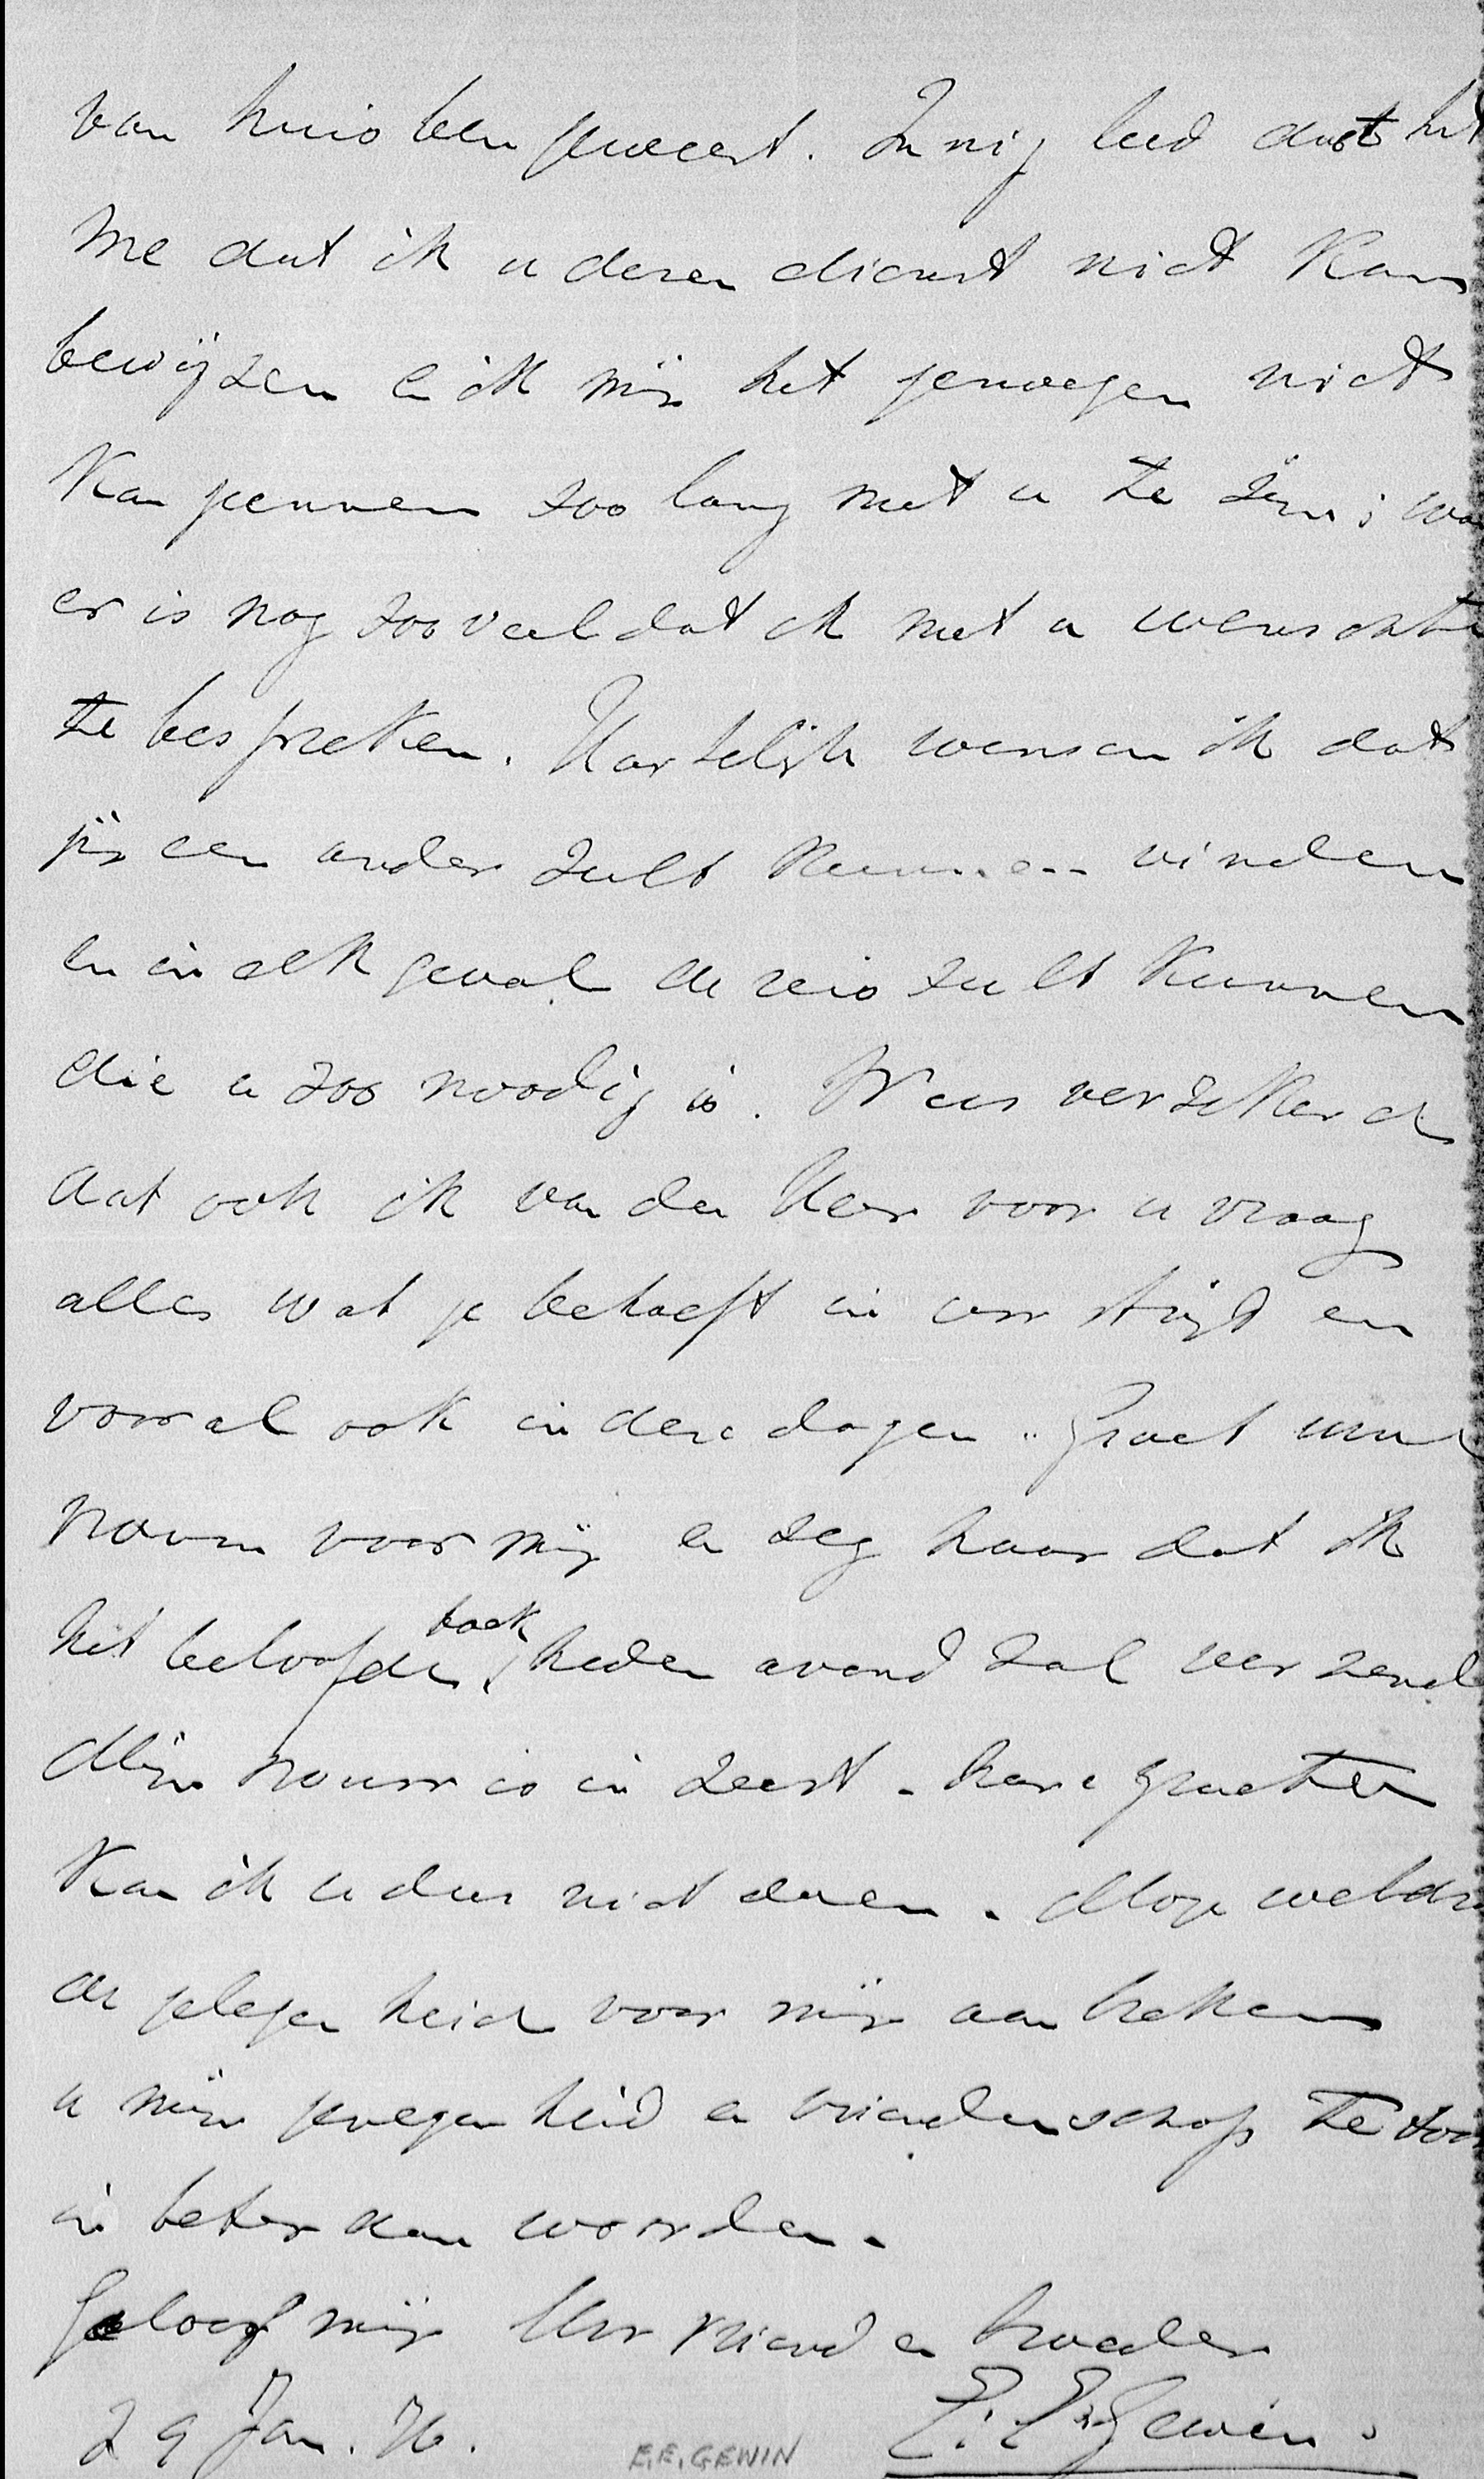 van huis ben geweest. Innig leed doet het
me dat ik u dezen dienst niet kan
bewijzen en ik mij het genoegen niet
kan gunnen zoo lang met u te zijn; wa
er is nog zooveel dat ik met u wenschte
te bespreken. Hartelijk wensch ik dat
gij een ander zult kunnen vinden
en in elk geval de reis zult kunnen
die u zoo noodig is. Wees verzekerd
dat ook ik van den Heer voor u vraag
alles wat ge behoeft in uw strijd en
vooral ook in deze dagen. Groet uwe
vrouw voor mij en zeg haar dat ik
het beloofde boek heden avond zal verzend
Mijn vrouw is in Zeist. hare groeten
kan ik u dus niet doen. Moge weldra
de gelegenheid voor mij aanbreken
u mijn genegenheid en vriendenschap te too
in beter dan woorden.
Geloof mij Uw vriend en broeder
29 Jan. 76. E. E. Gewin.
E.E. GEWIN